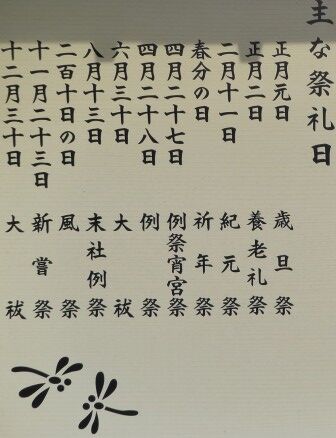 主な祭礼日
正月元日 歳旦祭
正月二日 養老礼祭
二月十一日 紀元祭
春分の日 祈年祭
四月二十七日 例祭宵宮祭
四月二十八日 例祭
六月三十日 大祓
八月十三日 末社例祭
二百十日の日 風祭
十一月二十三日 新嘗祭
十二月三十日 大祓